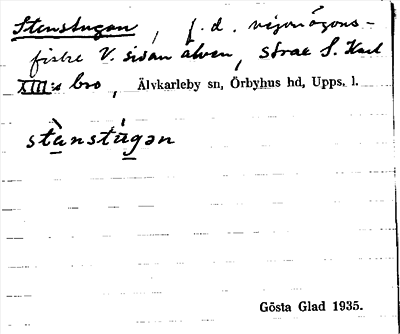 Stenstugan, f. d. nejonögons-
fiske V. sidan älven, strax S. Karl
XIII:s bro, Älvkarleby sn, Örbyhus hd, Upps. l.
stènstúgən
Gösta Glad 1935.